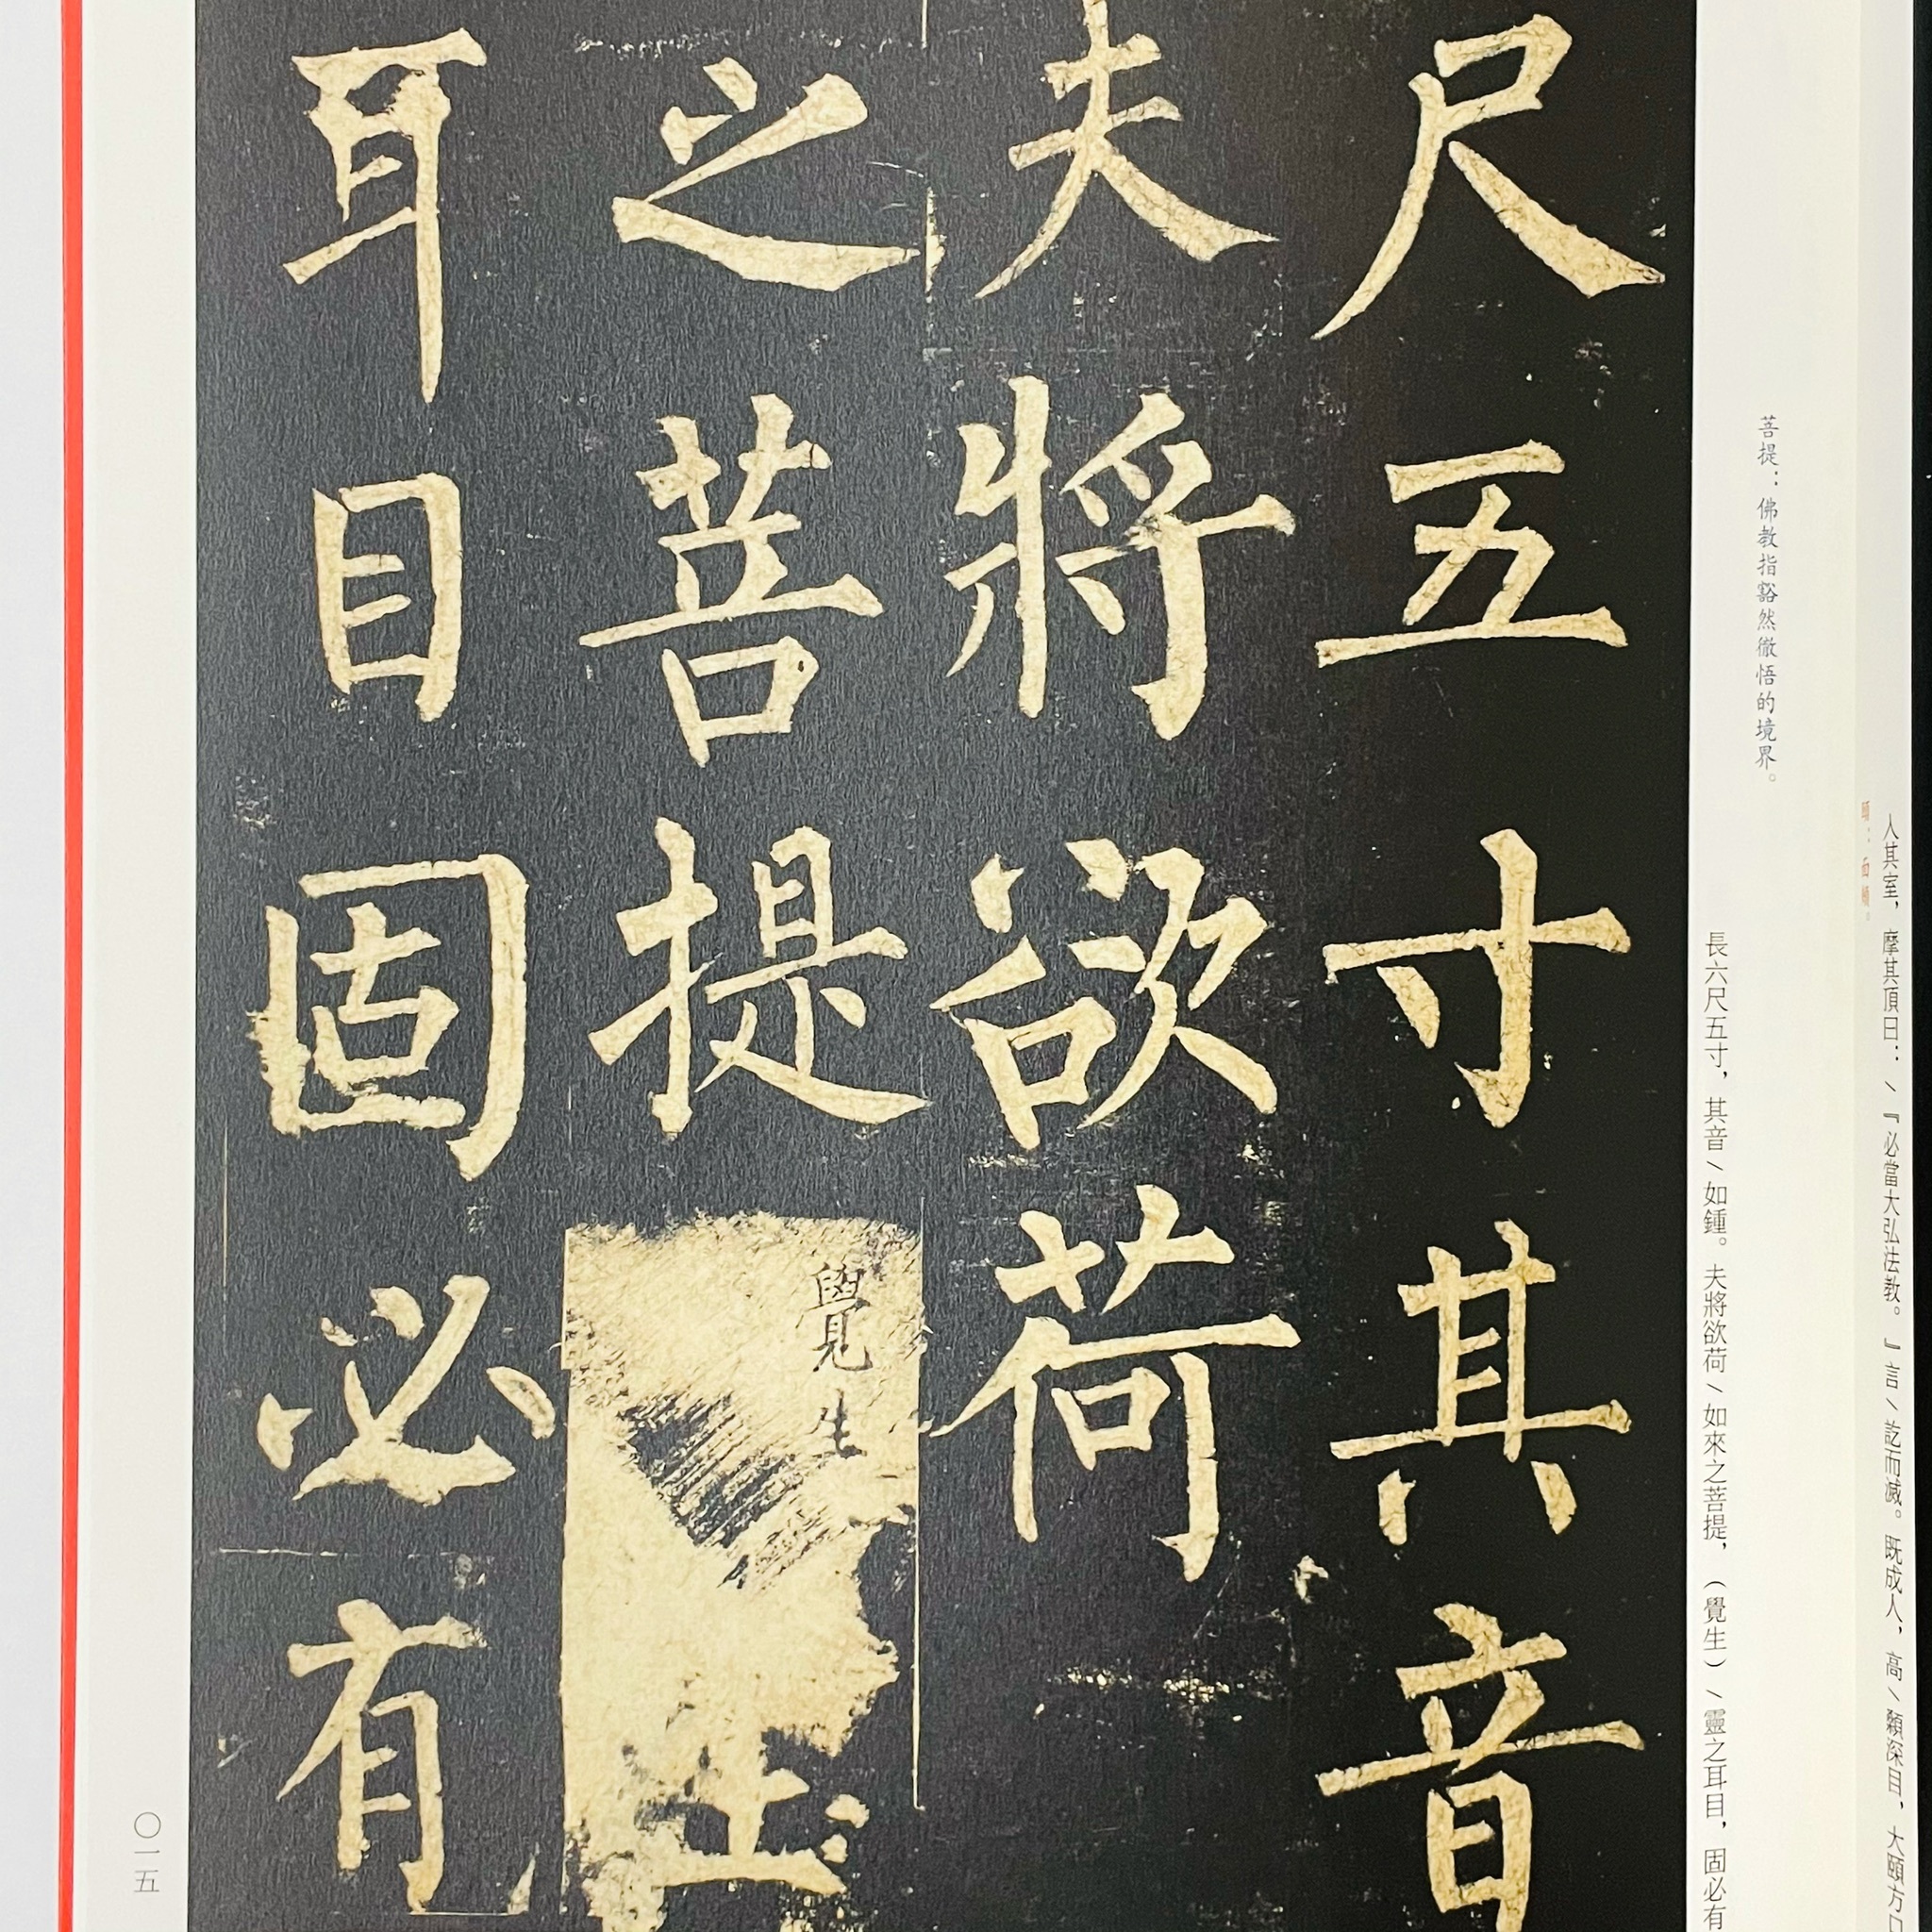 入其室，摩其頂曰：／『必當大弘法教。』言／訖而滅。既成人，高／顙深目，大頤方口
頤：面頰。
菩提：佛教指豁然徹悟的境界。
長六尺五寸，其音／如鍾。夫將欲荷／如來之菩提，（覺生）／靈之耳目，固必有
尺五寸其音
夫將欲荷
之菩提
覺生
耳目固必有
〇一五